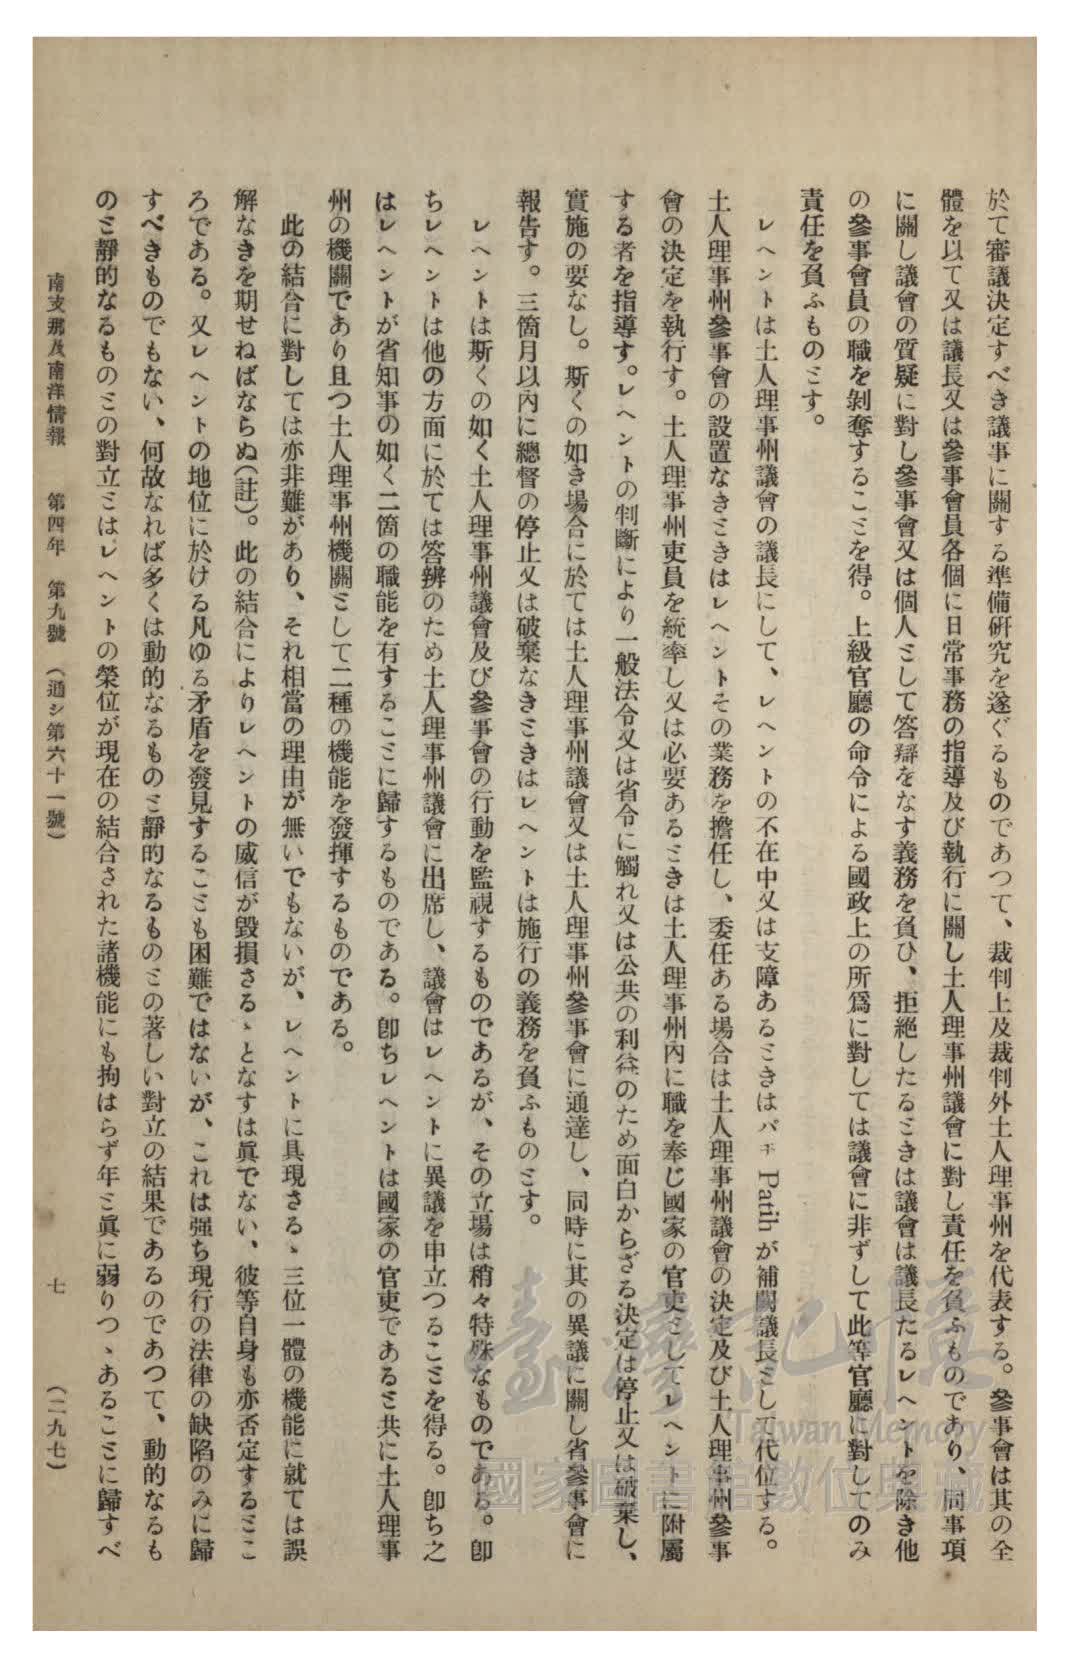 於て審議決定すべき議事に關する準備硏究を遂ぐるものであつて、裁判上及裁判外土人理事州を代表する。參事會は其の全
體を以て又は議長又は參事會員各個に日常事務の指導及び執行に關し土人理事州議會に對し責任を負ふものであり、同事項
に關し議會の質疑に對し參事會又は個人ヿして答辯をなす義務を負ひ、拒絕したるヿきは議會は議長たるレヘントを除き他
の參事會員の職を剝奪するこヿを得。上級官廳の命令による國政上の所爲に對しては議會に非ずして此等官廳に對してのみ
責任を負ふものヿす。
レヘントは土人理事州議會の議長にして、レヘントの不在中又は支障あるヿきはパチ Patih が補闕議長ヿして代位する。
土人理事州參事會の設置なきヿきはレヘントその業務を擔任し、委任ある場合は土人理事州議會の決定及び土人理事州參事
會の決定を執行す。土人理事州吏員を統率し又は必要あるヿきは土人理事州內に職を奉じ國家の官吏ヿしてレヘントに附屬
する者を指導す。レヘントの判斷により一般法令又は省令に觸れ又は公共の利益のため面白からざる決定は停止又は破棄し、
實施の要なし。斯くの如き場合に於ては土人理事州議會又は土人理事州參事會に通達し、同時に其の異議に關し省參事會に
報吿す。三箇月以內に總督の停止又は破棄なきヿきはレヘントは施行の義務を負ふものヿす。
レヘントは斯くの如く土人理事州議會及び參事會の行動を監視するものであるが、その立場は稍々特殊なものである。卽
ちレヘントは他の方面に於ては答辨のため土人理事州議會に出席し、議會はレヘントに異議を申立つるこヿを得る。卽ち之
はレヘントが省知事の如く二箇の職能を有するこヿに歸するものである。卽ちレヘントは國家の官吏であるヿ共に土人理事
州の機關であり且つ土人理事州機關ヿして二種の機能を發揮するものである。
此の結合に對しては亦非難があり、それ相當の理由が無いでもないが、レヘントに具現さるゝ三位一體の機能に就ては誤
解なきを期せねばならぬ(註)。此の結合によりレヘントの威信が毀損さるゝとなすは眞でない、彼等自身も亦否定するヿこ
ろである。又レヘントの地位に於ける凡ゆる矛盾を發見するこヿも困難ではないが、これは强ち現行の法律の缺陷のみに歸
すべきものでもない、何故なれば多くは動的なるものヿ靜的なるものヿの著しい對立の結果であるのであつて、動的なるも
のヿ靜的なるものヿの對立ヿはレヘントの榮位が現在の結合された諸機能にも拘はらず年ヿ眞に弱りつゝあるこヿに歸すべ
南支那及南洋情報 第四年 第九號 (通シ第六十一號) 七 (二九七)
臺灣記憶
Taiwan Memory
國家圖書館數位典藏